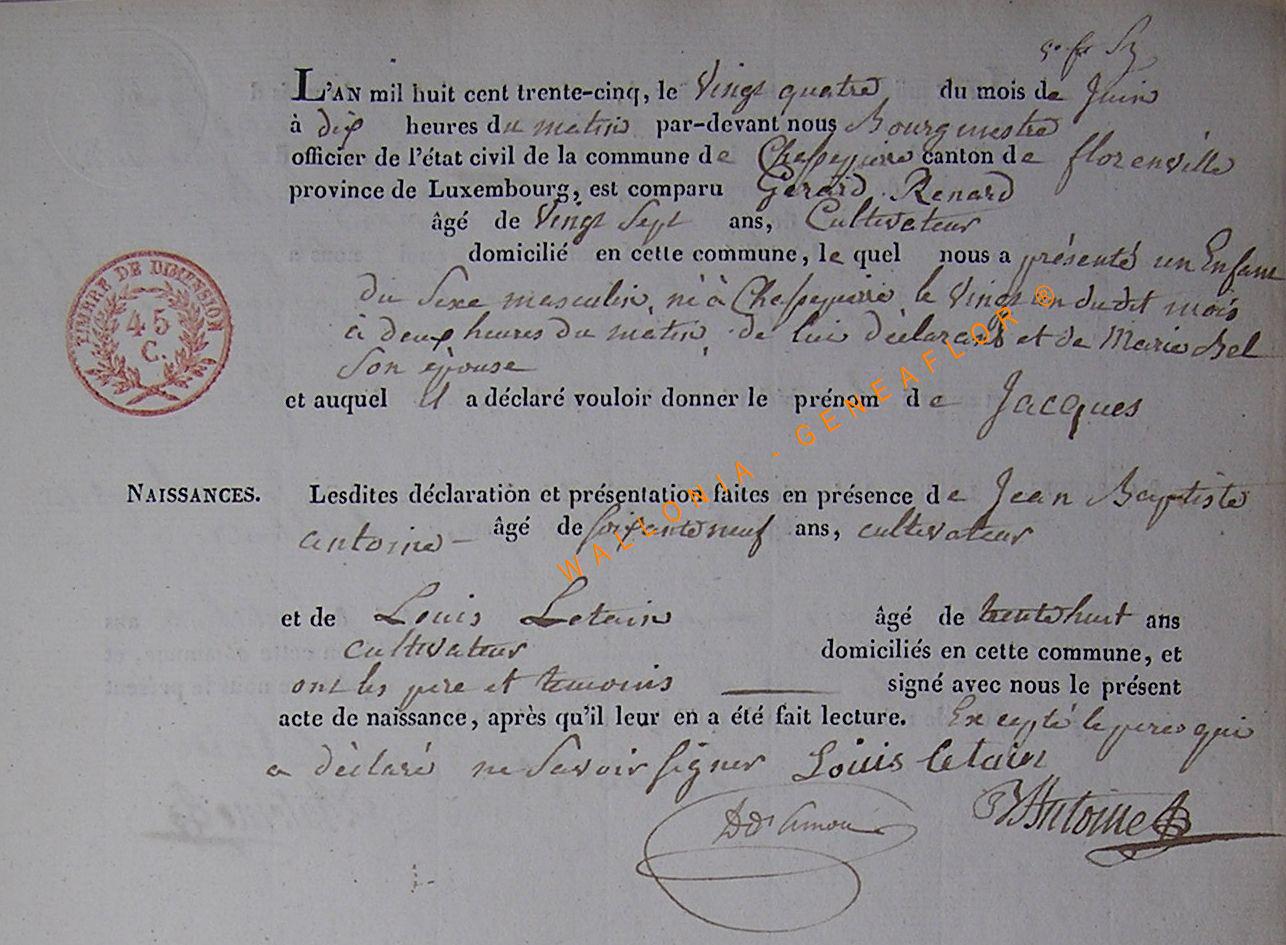 L'AN mil huit cent trente-cinq, le Vingt quatre du mois de Juin
à dix heures du matin par-devant nous Bourgmestre
officier de l'état civil de la commune de Chassepierre canton de florenville
province de Luxembourg, est comparu Gérard Renard
âgé de Vingt Sept ans, Cultivateur
domicilié en cette commune, le quel nous a présenté un Enfant
du Sexe masculin, né à Chassepierre le Vingt un du dit mois
à deux heures du matin de lui déclarant et de Marie
Son épouse
et auquel il a déclaré vouloir donner le prénom de Jacques
TIMBRE DE DIMENSION
45
C.
NAISSANCES. Lesdites déclaration et présentation faites en présence de Jean Baptiste
antoine — âgé de soixante neuf ans, cultivateur
et de Louis Letain âgé de trente huit ans
cultivateur domiciliés en cette commune, et
ont les pere et temoins signé avec nous le présent
acte de naissance, après qu'il leur en a été fait lecture. Excepté le pere qui
a déclaré ne Savoir Signer Louis Letain
Antoine
WALLONIA - GENEAFLOR ®